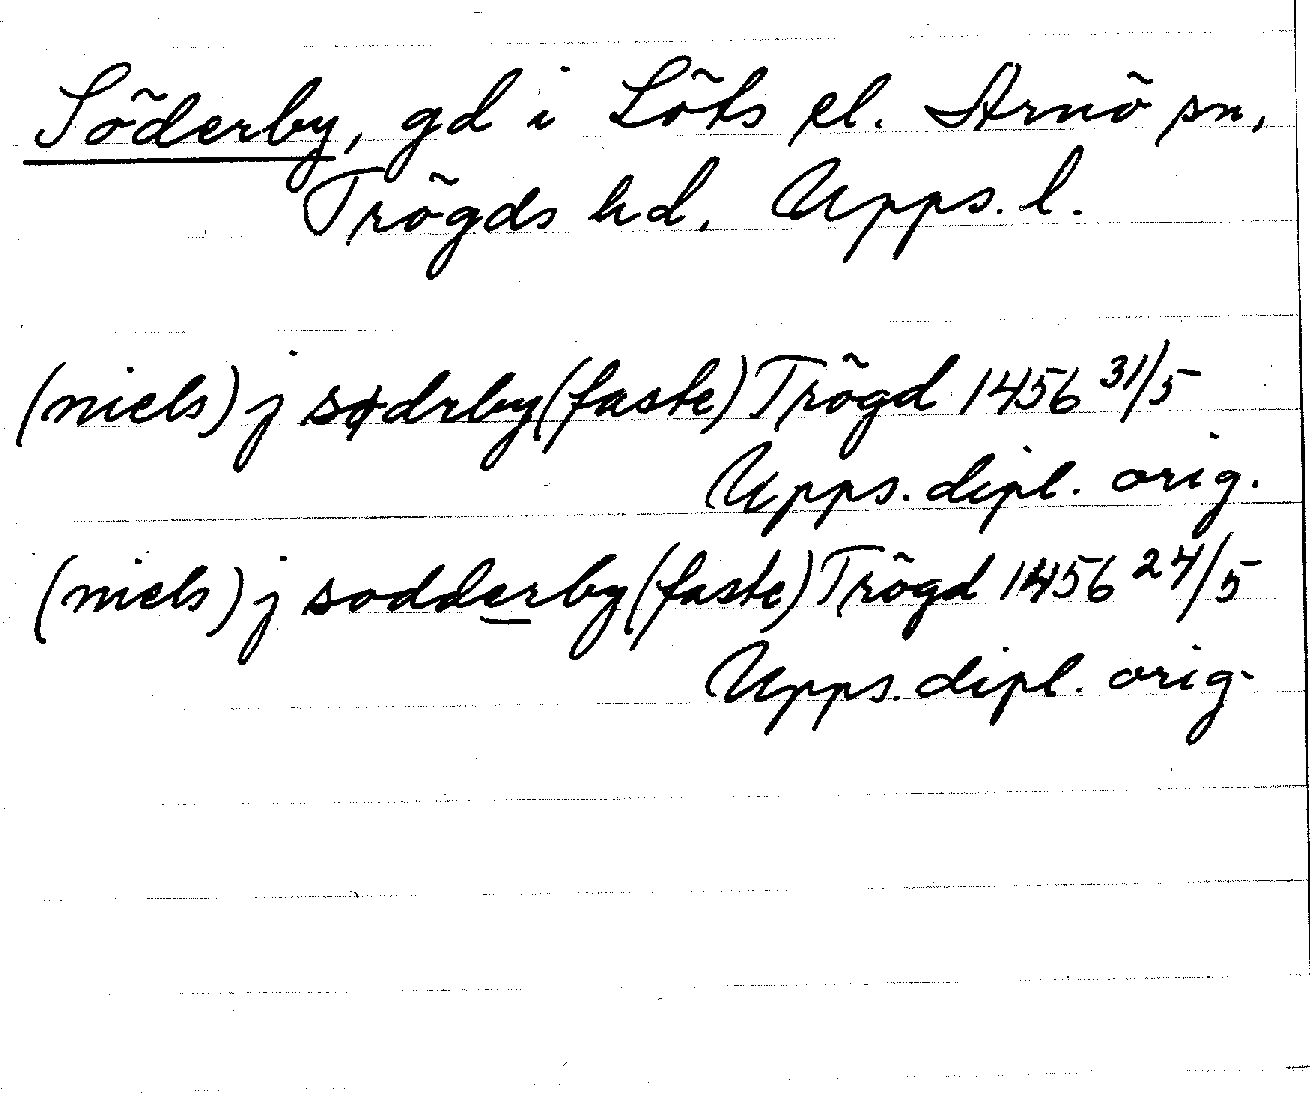 Söderby, gd i Löts el. Arnö sn,
Trögds hd, Upps. l.
(niels) j sødrby (faste) Trögd 1456 31/5
Upps. dipl. orig.
(niels) j sodderby (faste) Trögd 1456 24/5
Upps. dipl. orig.